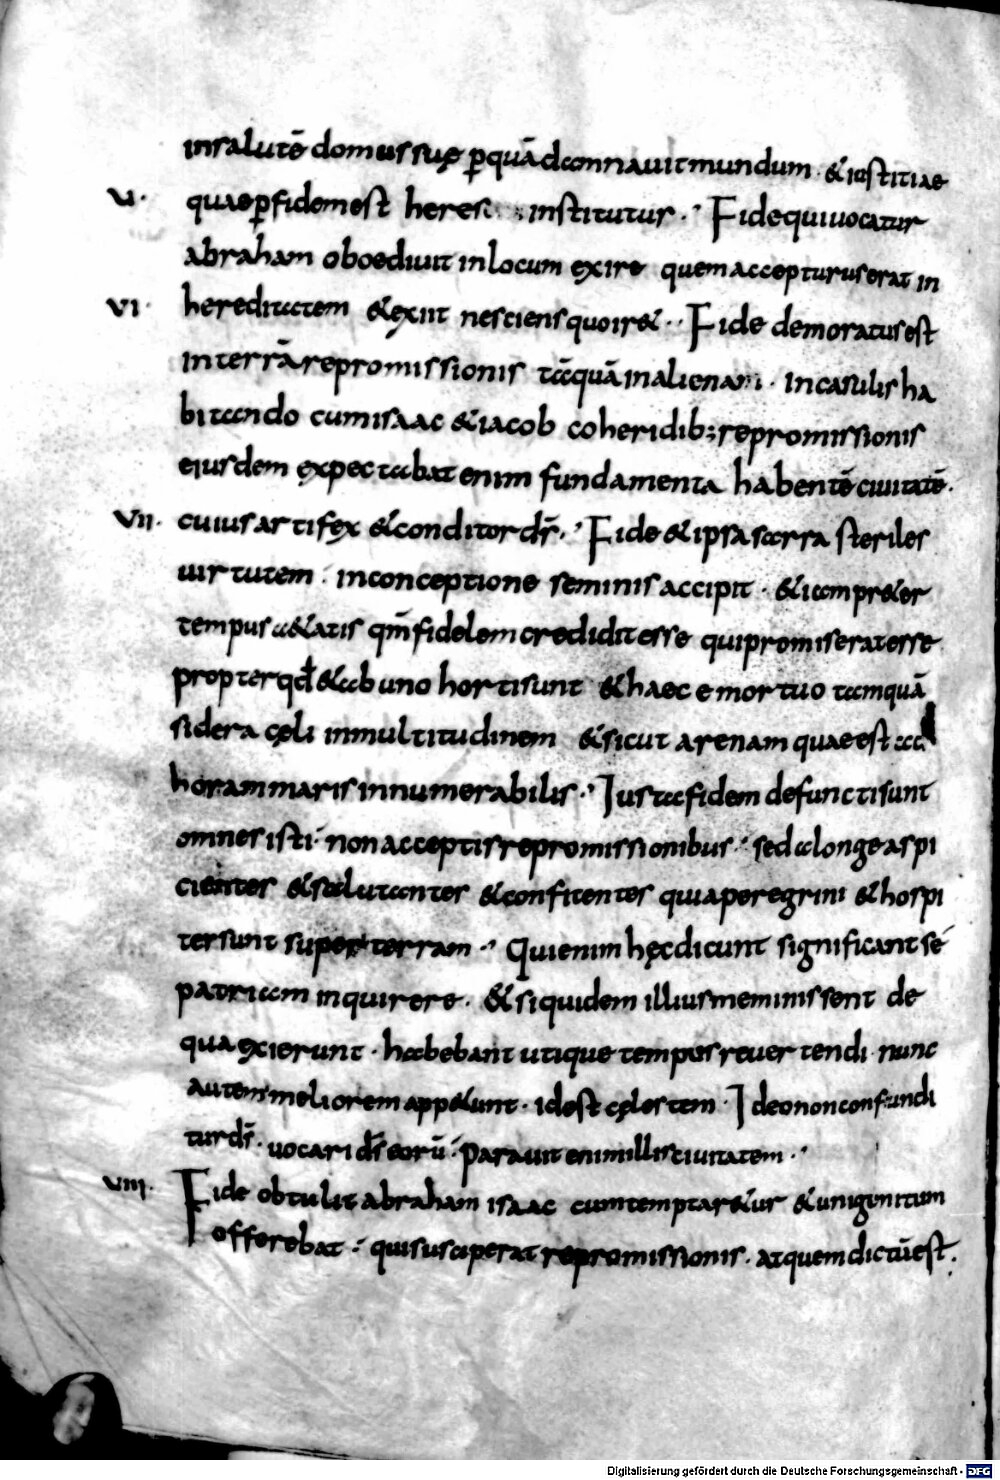 insalutē domussuę ꝑquā damnauitmundum · &iustitiae
v· quaeꝑfidemest heres institutus·, Fidequiuocatur
abraham oboediuit inlocum exire quemaccepturuserat in
vi· hereditatem &exiit nesciensquoir&·, Fide demoratusest
interrā repromissionis tāquā inaliena · incasulis ha
bitando cumisaac &iacob coheridib;repromissionis
eiusdem expectabat enim fundamenta habentē ciuitatē·
vii· cuiusartifex &conditor d̄s·, Fide &ipsasarra steriles
uirtutem · inconceptione seminis accipit · &iampr&er
tempusa&atis qm̄ fidelemcrediditesse quipromiseratesse
propterqđ &abuno hortisunt &haec emortuo tamquā
sidera cęli inmultitudinem &sicut arenam quaeest
horammaris innumerabilis·, Iustafidem defunctisunt
omnes isti· nonacceptisrepromissionibus·, sed alonge aspi
cientes &salutantes &confitentes quiaperegrini &hospi
tersunt super terram·, Quienim hęcdicunt significant sé
patriam inquirere· &siquidem illiusmeminissent de
qua exierunt · habebant utique tempus reuertendi· nunc
autem meliorem app&unt · idest cęlestem · Ideononconfundi
turd̄s· uocari d̄s eorū· Parauit enimillisciuitatem·,
viii· Fide obtulit abraham isaac cumtemptar&ur &unigenitum
offerebat · quisusceperat repromissionis· atquemdictūest·
Digitalisierung gefördert durch die Deutsche Forschungsgemeinschaft - DFG